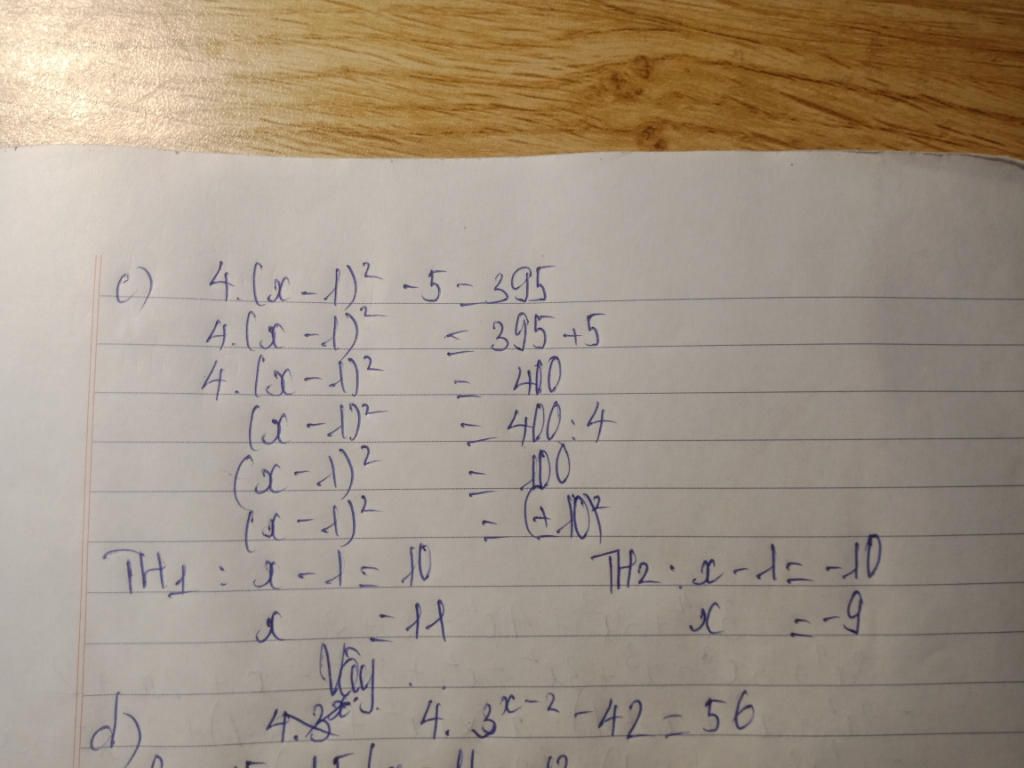 c) 4.(x - 1)² - 5 = 395
4.(x - 1)² = 395 + 5
4.(x - 1)² = 400
(x - 1)² = 400 : 4
(x - 1)² = 100
(x - 1)² = (± 10)²
TH1 : x - 1 = 10 TH2 : x - 1 = -10
x = 11 x = -9
Vậy . .
d) 4. 3ˣ⁻² - 42 = 56